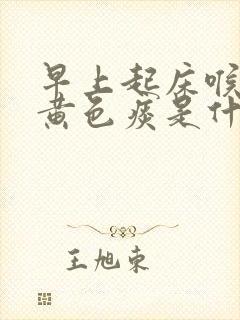 早上起床喉
黄色痰是什
王旭东